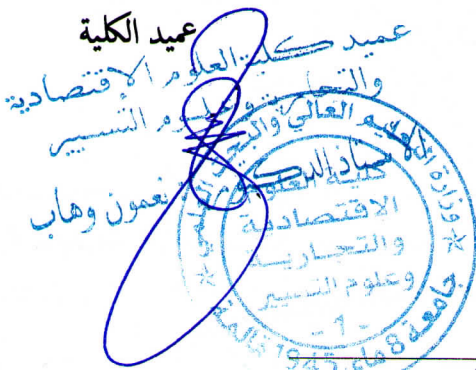 عميد الكلية
عميد كلية العلوم الإقتصادية
والتجارية وعلوم التسيير
الأستاذ الدكتور نعمون وهاب
وزارة التعليم العالي والبحث العلمي
كلية العلوم
الاقتصادية
والتجارية
وعلوم التسيير
- 1 -
جامعة 8 ماي 1945 قالمة